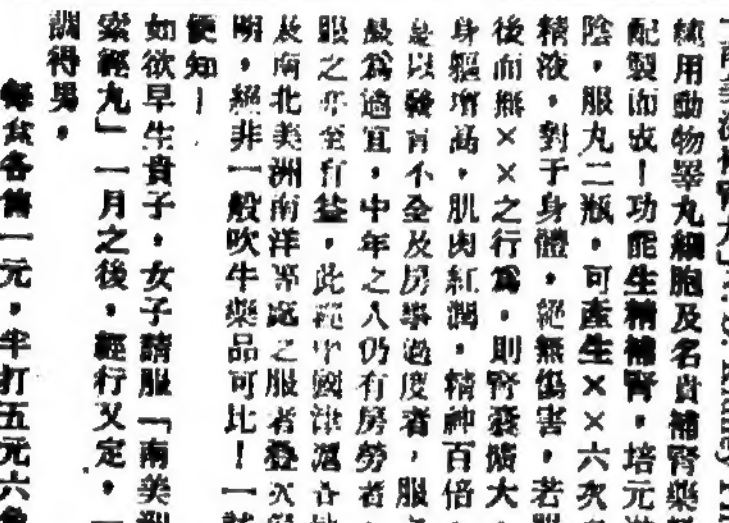 純用動物睪丸細胞及名貴補腎藥
配製而成！功能生精補腎。培元
陰。服丸二瓶。可產生××六次
精液。對于身體。絕無傷害。若
後而無××之行為。則腎囊擴大
身軀增高。肌肉紅潤。精神百倍
是以發育不全及房事過度者，服
最為適宜。中年之人仍有房勞者
服之亦至有益。此經中國津滬各
及南北美洲南洋等處之服者登
明。絕非一般吹牛藥品可比！一試
便知！
如欲早生貴子。女子請服「南美
索經丸」一月之後。經行又定。
調得男。
每盒各售一元。半打五元六角